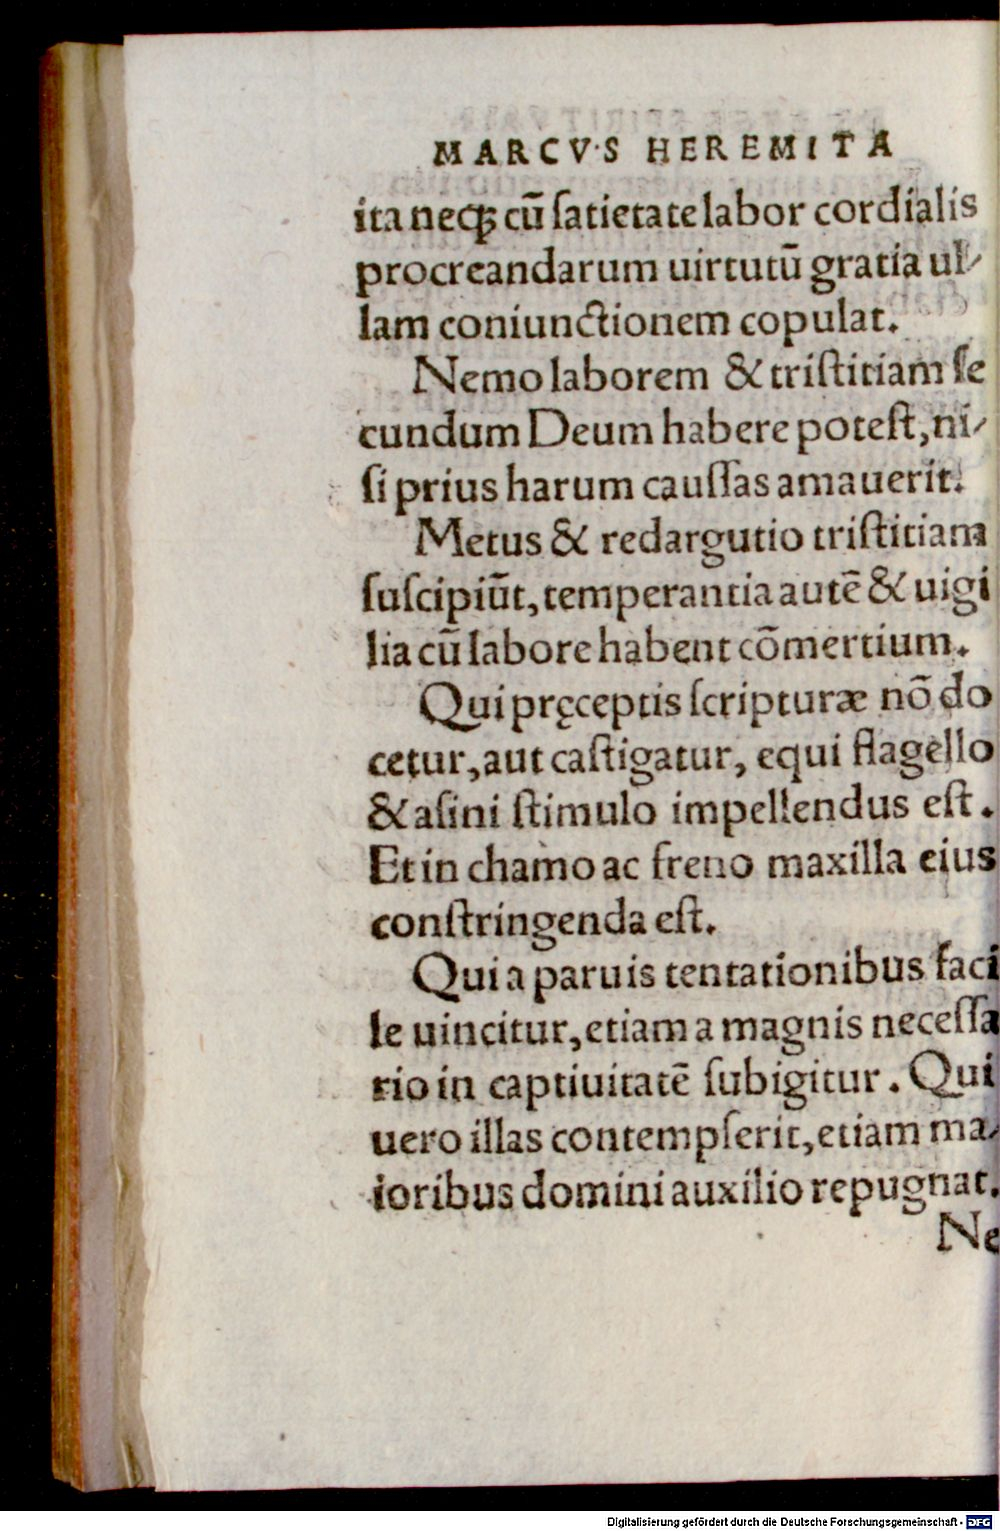 MARCVS HEREMITA
ita neqꝫ cū ſatietate labor cordialis
procreandarum uirtutū gratia ul-
lam coniunctionem copulat.
Nemo laborem & triſtitiam ſe
cundum Deum habere poteſt, ni-
ſi prius harum cauſſas amauerit.
Metus & redargutio triſtitiam
ſuſcipiūt, temperantia autē & uigi
lia cū labore habent cōmertium.
Qui pręceptis ſcripturæ nō do
cetur, aut caſtigatur, equi flagello
& aſini ſtimulo impellendus eſt.
Et in chamo ac freno maxilla eius
conſtringenda eſt.
Qui a paruis tentationibus faci
le uincitur, etiam a magnis neceſſa
rio in captiuitatē ſubigitur. Qui
uero illas contempſerit, etiam ma-
ioribus domini auxilio repugnat.
Ne
Digitalisierung gefördert durch die Deutsche Forschungsgemeinschaft - DFG